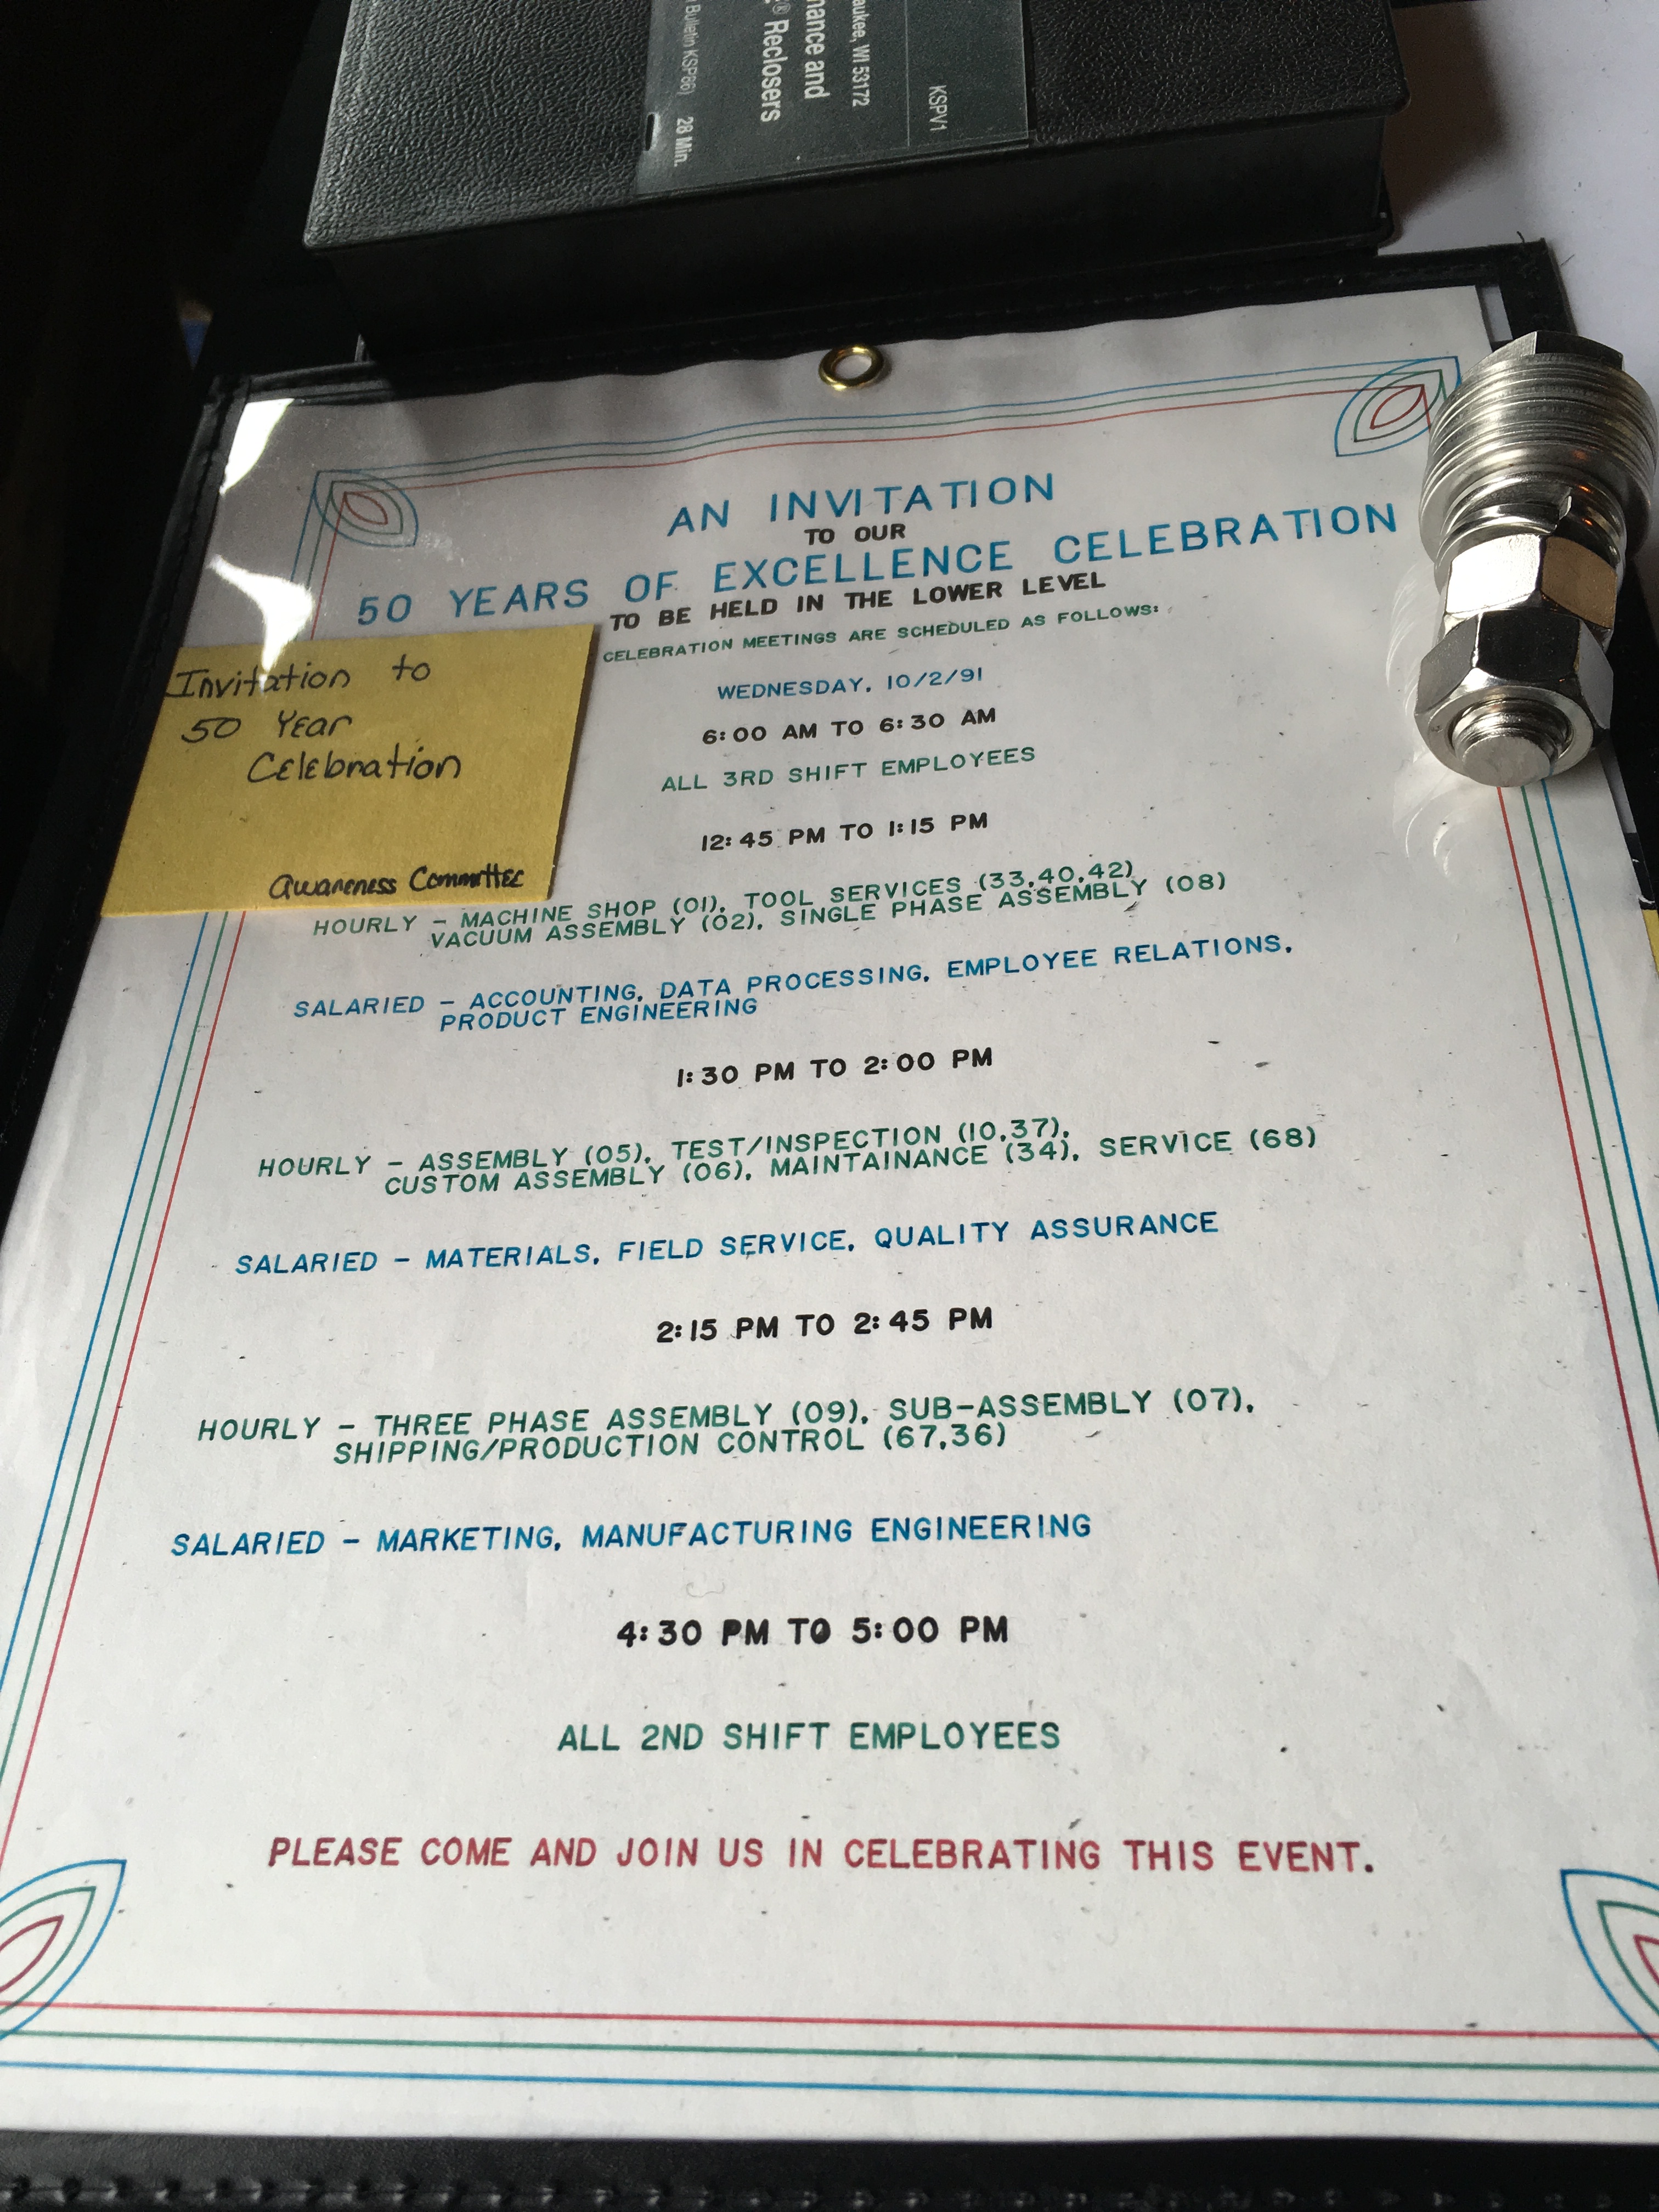 aukee, WI 53172
KSPV1
nance and
® Reclosers
Bulletin KSP86) 28 Min.
AN INVITATION
TO OUR
50 YEARS OF EXCELLENCE CELEBRATION
TO BE HELD IN THE LOWER LEVEL
CELEBRATION MEETINGS ARE SCHEDULED AS FOLLOWS:
Invitation to
50 Year
Celebration
Awareness Committee
WEDNESDAY, 10/2/91
6:00 AM TO 6:30 AM
ALL 3RD SHIFT EMPLOYEES
12:45 PM TO 1:15 PM
HOURLY - MACHINE SHOP (01), TOOL SERVICES (33,40,42),
VACUUM ASSEMBLY (02), SINGLE PHASE ASSEMBLY (08)
SALARIED - ACCOUNTING, DATA PROCESSING, EMPLOYEE RELATIONS,
PRODUCT ENGINEERING
1:30 PM TO 2:00 PM
HOURLY - ASSEMBLY (05), TEST/INSPECTION (10,37),
CUSTOM ASSEMBLY (06), MAINTAINANCE (34), SERVICE (68)
SALARIED - MATERIALS, FIELD SERVICE, QUALITY ASSURANCE
2:15 PM TO 2:45 PM
HOURLY - THREE PHASE ASSEMBLY (09), SUB-ASSEMBLY (07),
SHIPPING/PRODUCTION CONTROL (67,36)
SALARIED - MARKETING, MANUFACTURING ENGINEERING
4:30 PM TO 5:00 PM
ALL 2ND SHIFT EMPLOYEES
PLEASE COME AND JOIN US IN CELEBRATING THIS EVENT.